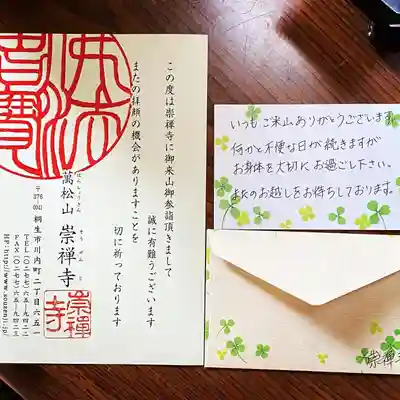 この度は崇禅寺に御来山御参詣頂きまして
誠に有難うございます
またの拝顔の機会がありますことを
切に祈っております
ばんしょうざん
萬松山
そうぜんじ
崇禅寺
〒376-0041
桐生市川内町二丁目六五一
TEL(〇二七七)六五-九四二三
HP:http://www.souzenji.jp/
崇禪寺
いつもご来山ありがとうございます。
何かと不便な日が続きますが
お身体を大切にお過ごし下さい。
またのお越しをお待ちしております。
崇禅寺